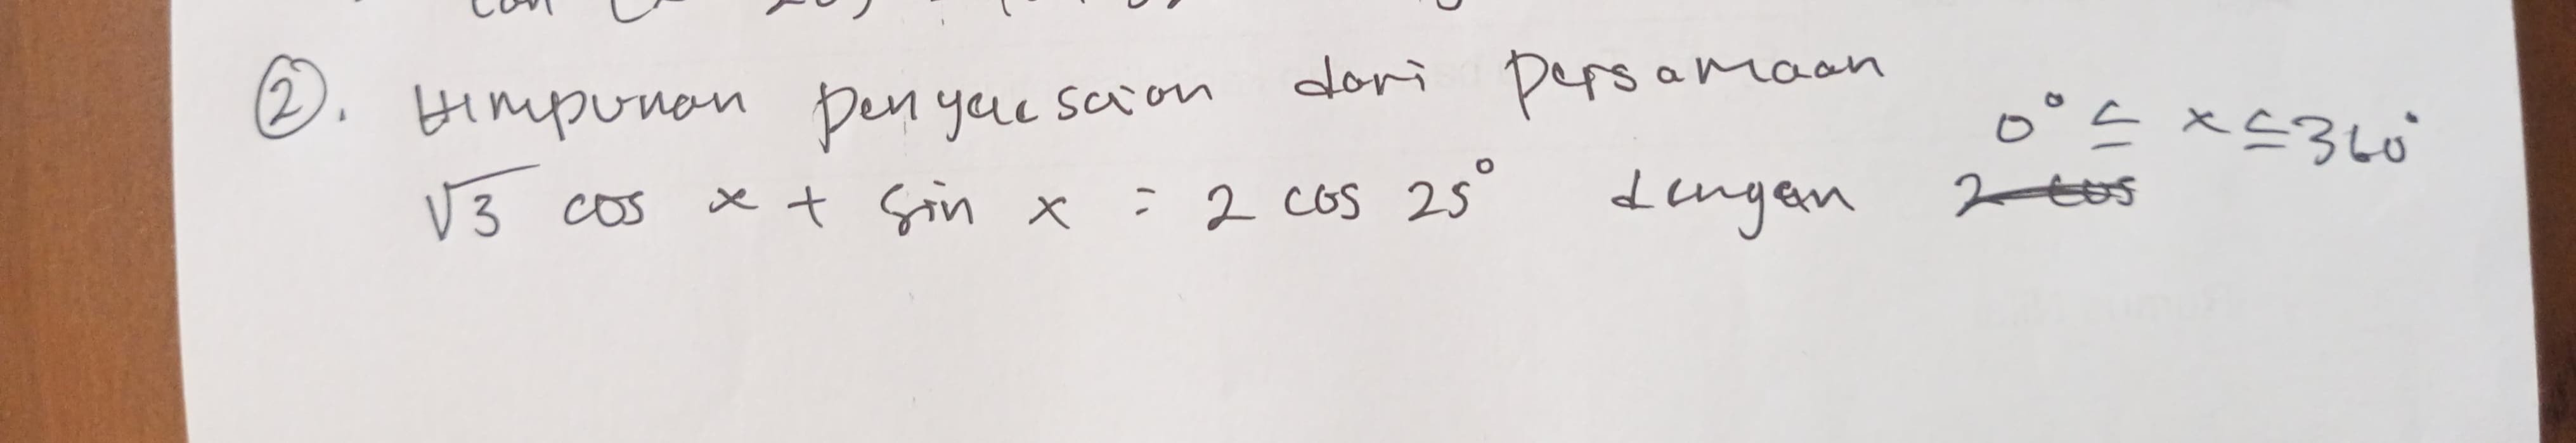 ②. Himpunan penyelesaian dari persamaan
√3 cos x + sin x = 2 cos 25° dengan 0° ≤ x ≤ 360°